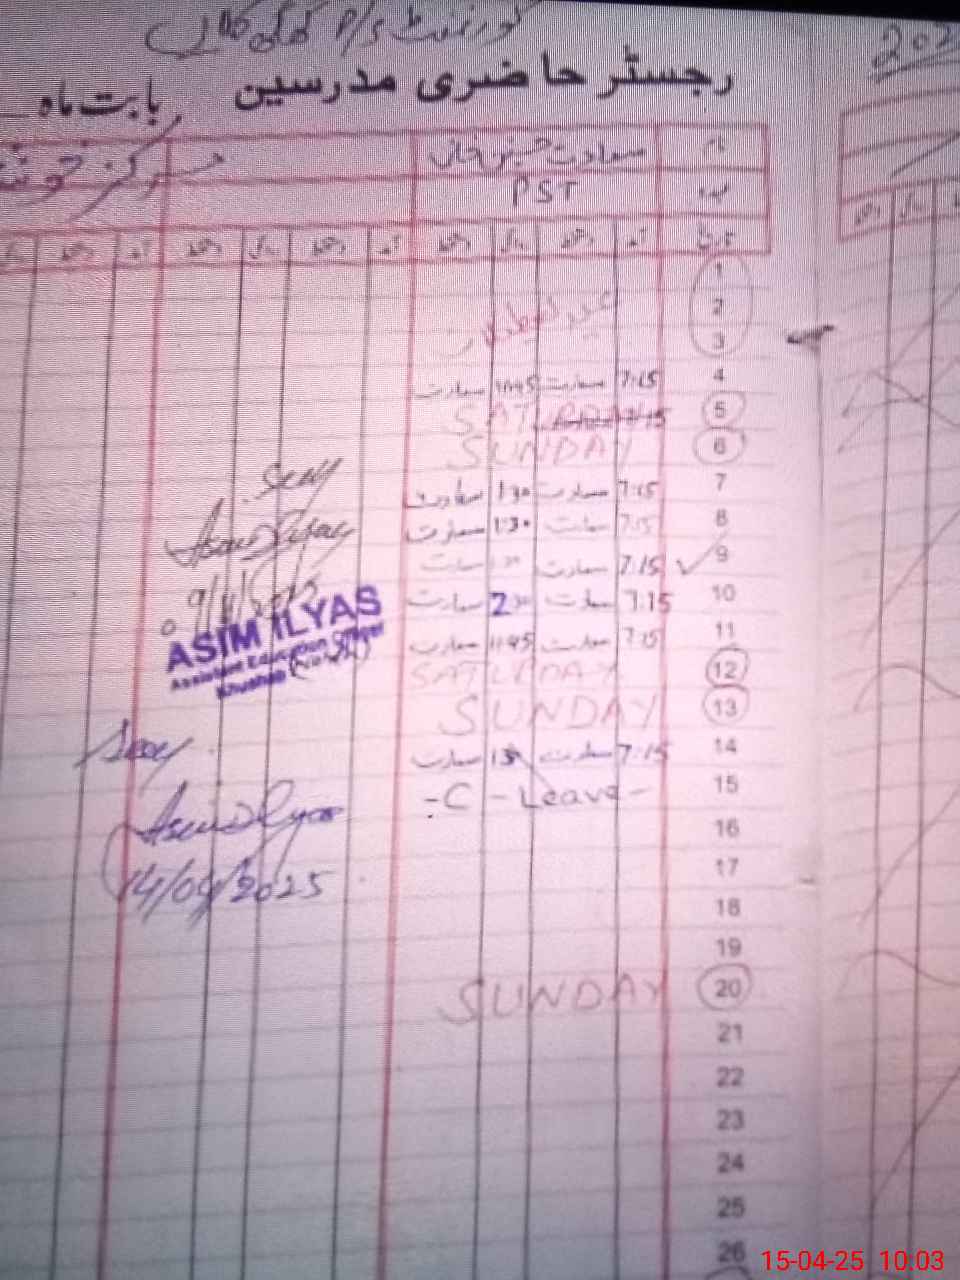 گورنمنٹ P/S
202
رجسٹر حاضری مدرسین بابت ماہ
نام سعادت حسین خان مرکز
عہدہ PST
تاریخ آمد دستخط روانگی دستخط آمد دستخط روانگی دستخط آمد دستخط
1
2 عیدالفطر
3
4 7:15 سعادت 11:45 سعادت
5 SATURDAY 7:15
6 SUNDAY
7 7:15 سعادت 1:30 سعادت
Seen
8 7:15 سعادت 1:30 سعادت
Asim Ilyas
9 7:15 سعادت 1:30 سعادت
10 7:15 سعادت 2:00 سعادت
ASIM ILYAS
Assistant Education Officer
Khushab
11 7:15 سعادت 11:45 سعادت
12 SATURDAY
13 SUNDAY
14 7:15 سعادت سعادت
Seen
15 -C-Leave-
Asim Ilyas
16
17
14/04/2025
18
19
20 SUNDAY
21
22
23
24
25
26
15-04-25 10:03